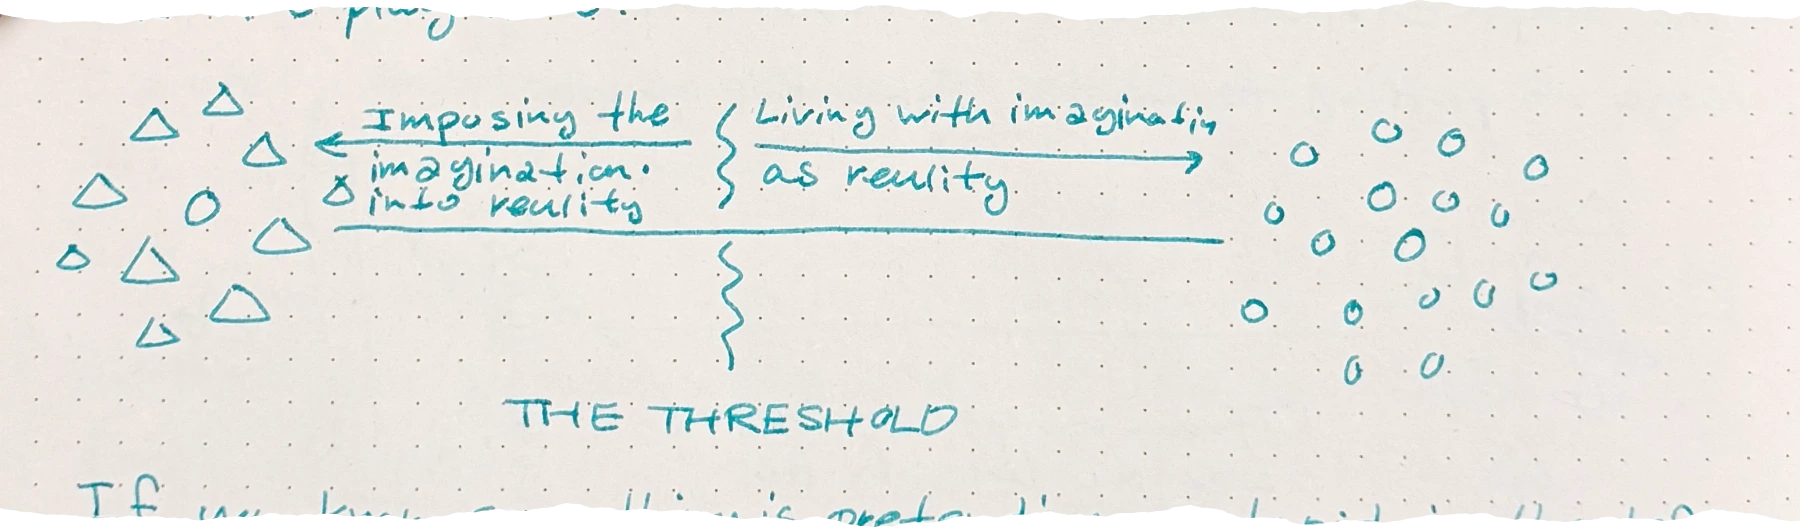 Imposing the
imagination.
into reality
Living with imaginatin
as reality.
THE THRESHOLD
If